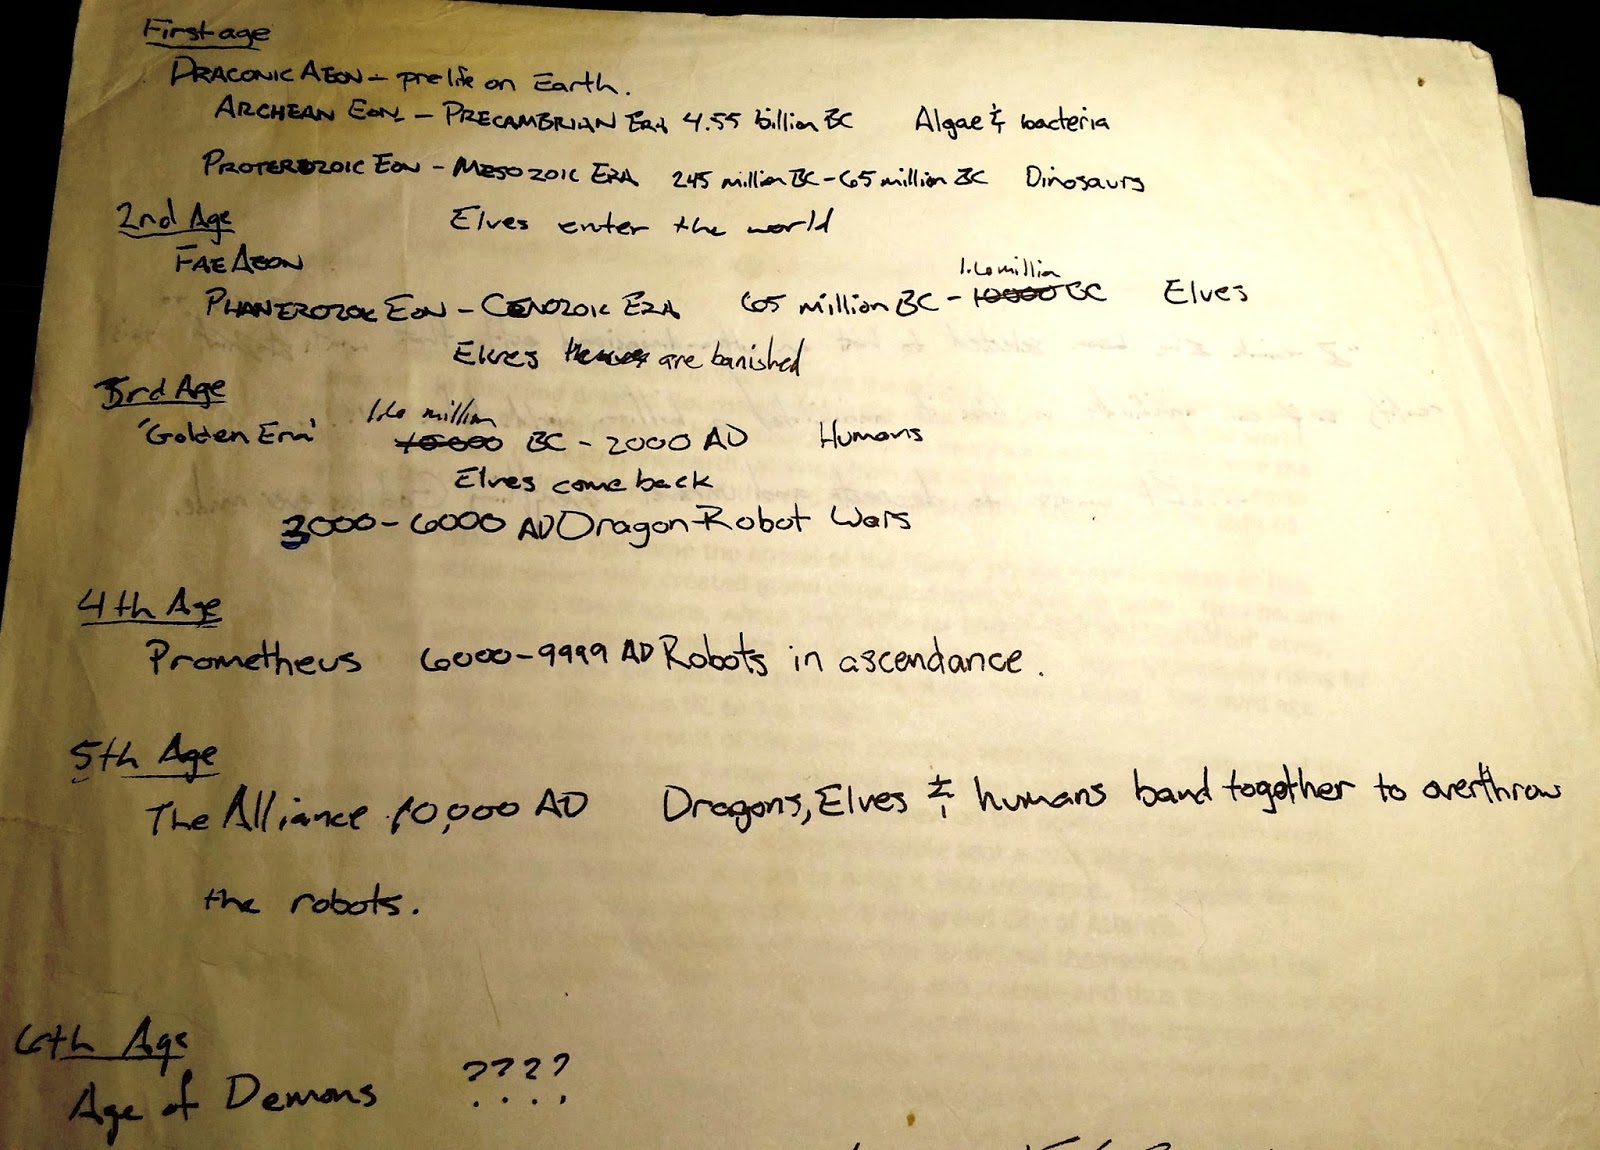 First age
DRACONIC AEON – prelife on Earth.
ARCHEAN EON – PRECAMBRIAN ERA 4.55 billion BC Algae & bacteria
PROTEROZOIC EON – MESOZOIC ERA 245 million BC – 65 million BC Dinosaurs
2nd Age Elves enter the world
FAE AEON
1.6 million
PHANEROZOIC EON – CENOZOIC ERA 65 million BC – 10000 BC Elves
Elves are banished
3rd Age
1.6 million
'Golden Era' 10000 BC – 2000 AD Humans
Elves come back
3000–6000 AD Dragon-Robot Wars
4th Age
Prometheus 6000–9999 AD Robots in ascendance.
5th Age
The Alliance 10,000 AD Dragons, Elves & humans band together to overthrow
the robots.
6th Age
Age of Demons ????